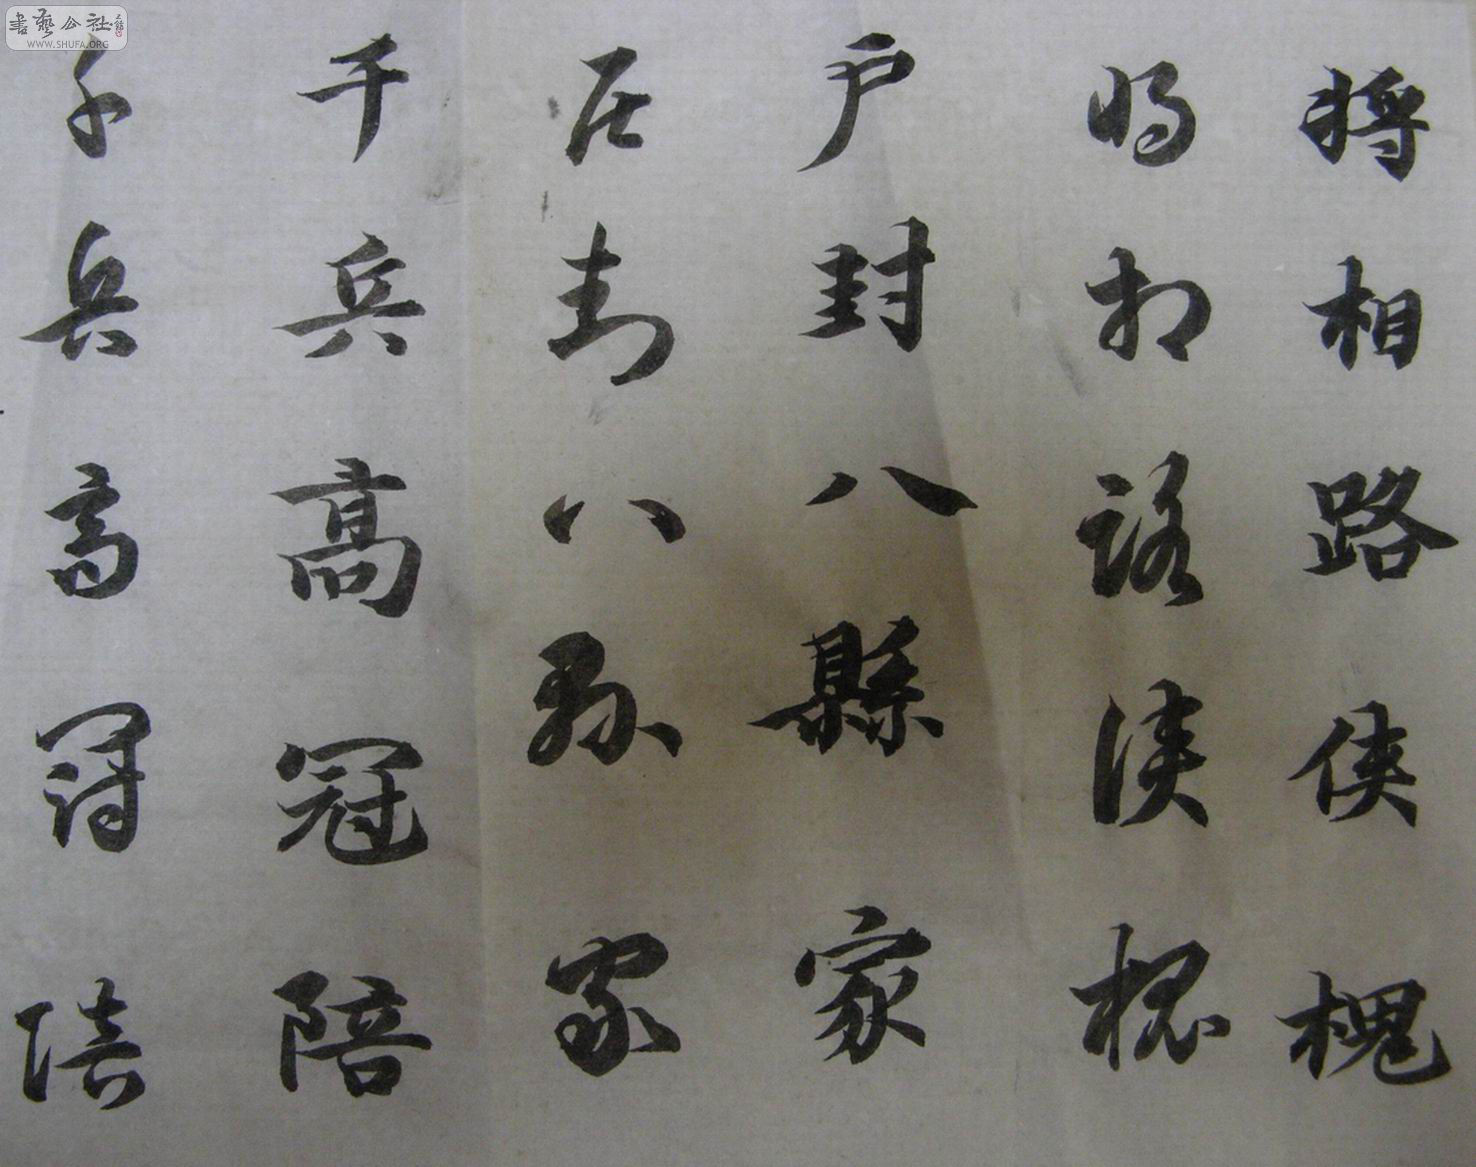 将相路侠槐
将相路侠槐
户封八縣家
户封八縣家
千兵高冠陪
千兵高冠陪
書藝公社
WWW.SHUFA.ORG